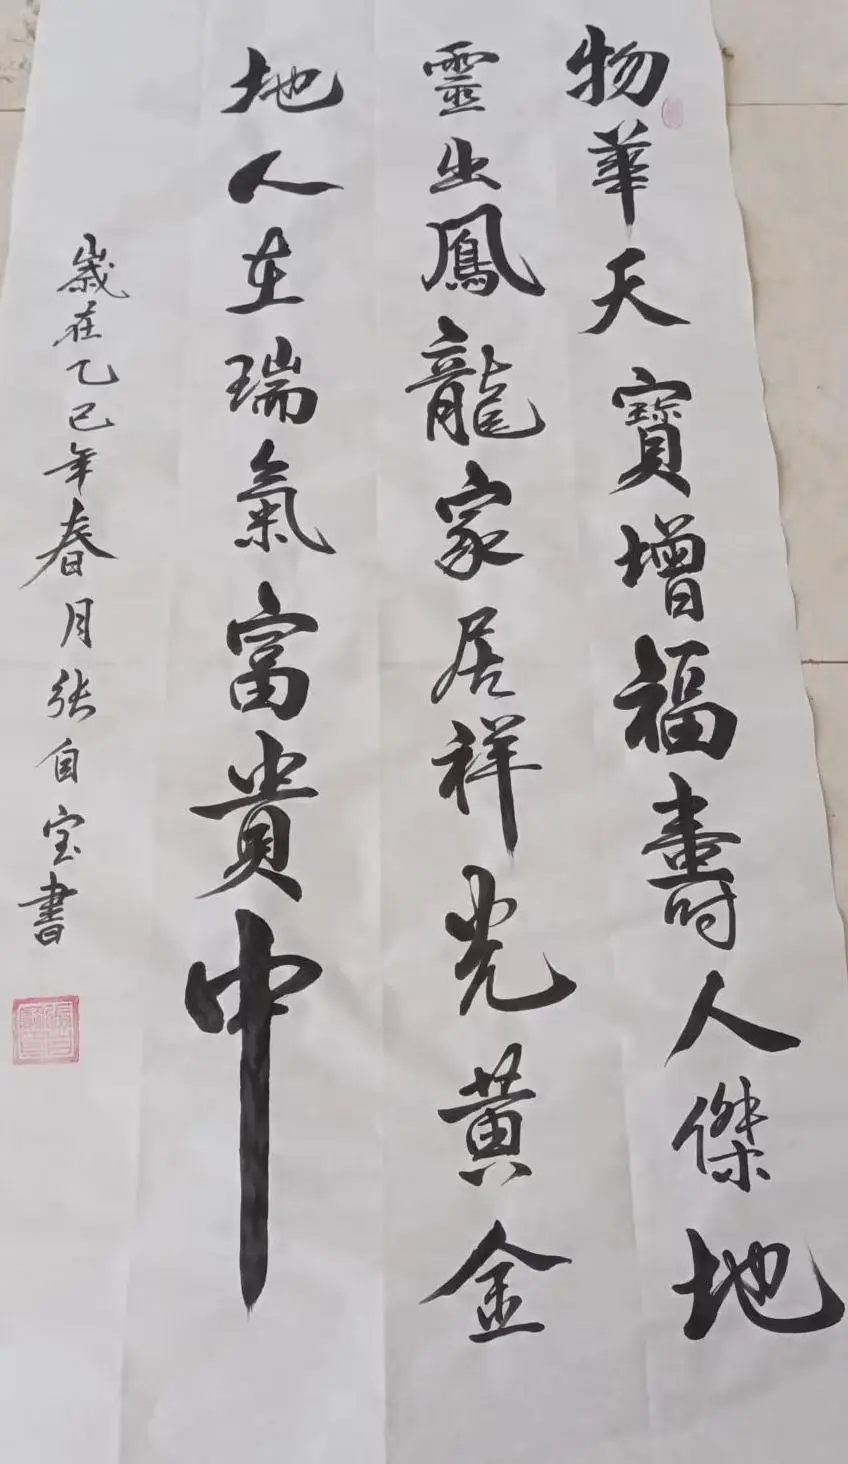 物華天寶增福壽人傑地
靈出鳳龍家居祥光黃金
地人在瑞氣富貴中
歲在乙巳年春月张自宝書